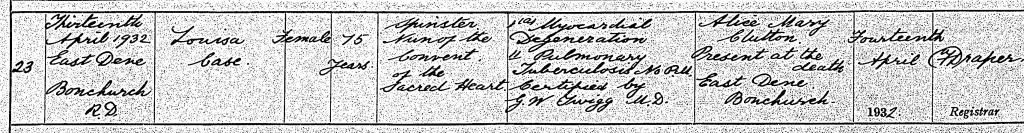 23
Thirteenth
April 1932
East Dene
Bonchurch
R.D.
Louisa
Case
Female
75
Years
Spinster
Nun of the
Convent
of the
Sacred Heart
Myocardial
Degeneration
Pulmonary
Tuberculosis No P.M.
Certified by
G.W Twigg M.D.
Alice Mary
Clutton
Present at the
death
East Dene
Bonchurch
Fourteenth
April
1932
Draper
Registrar